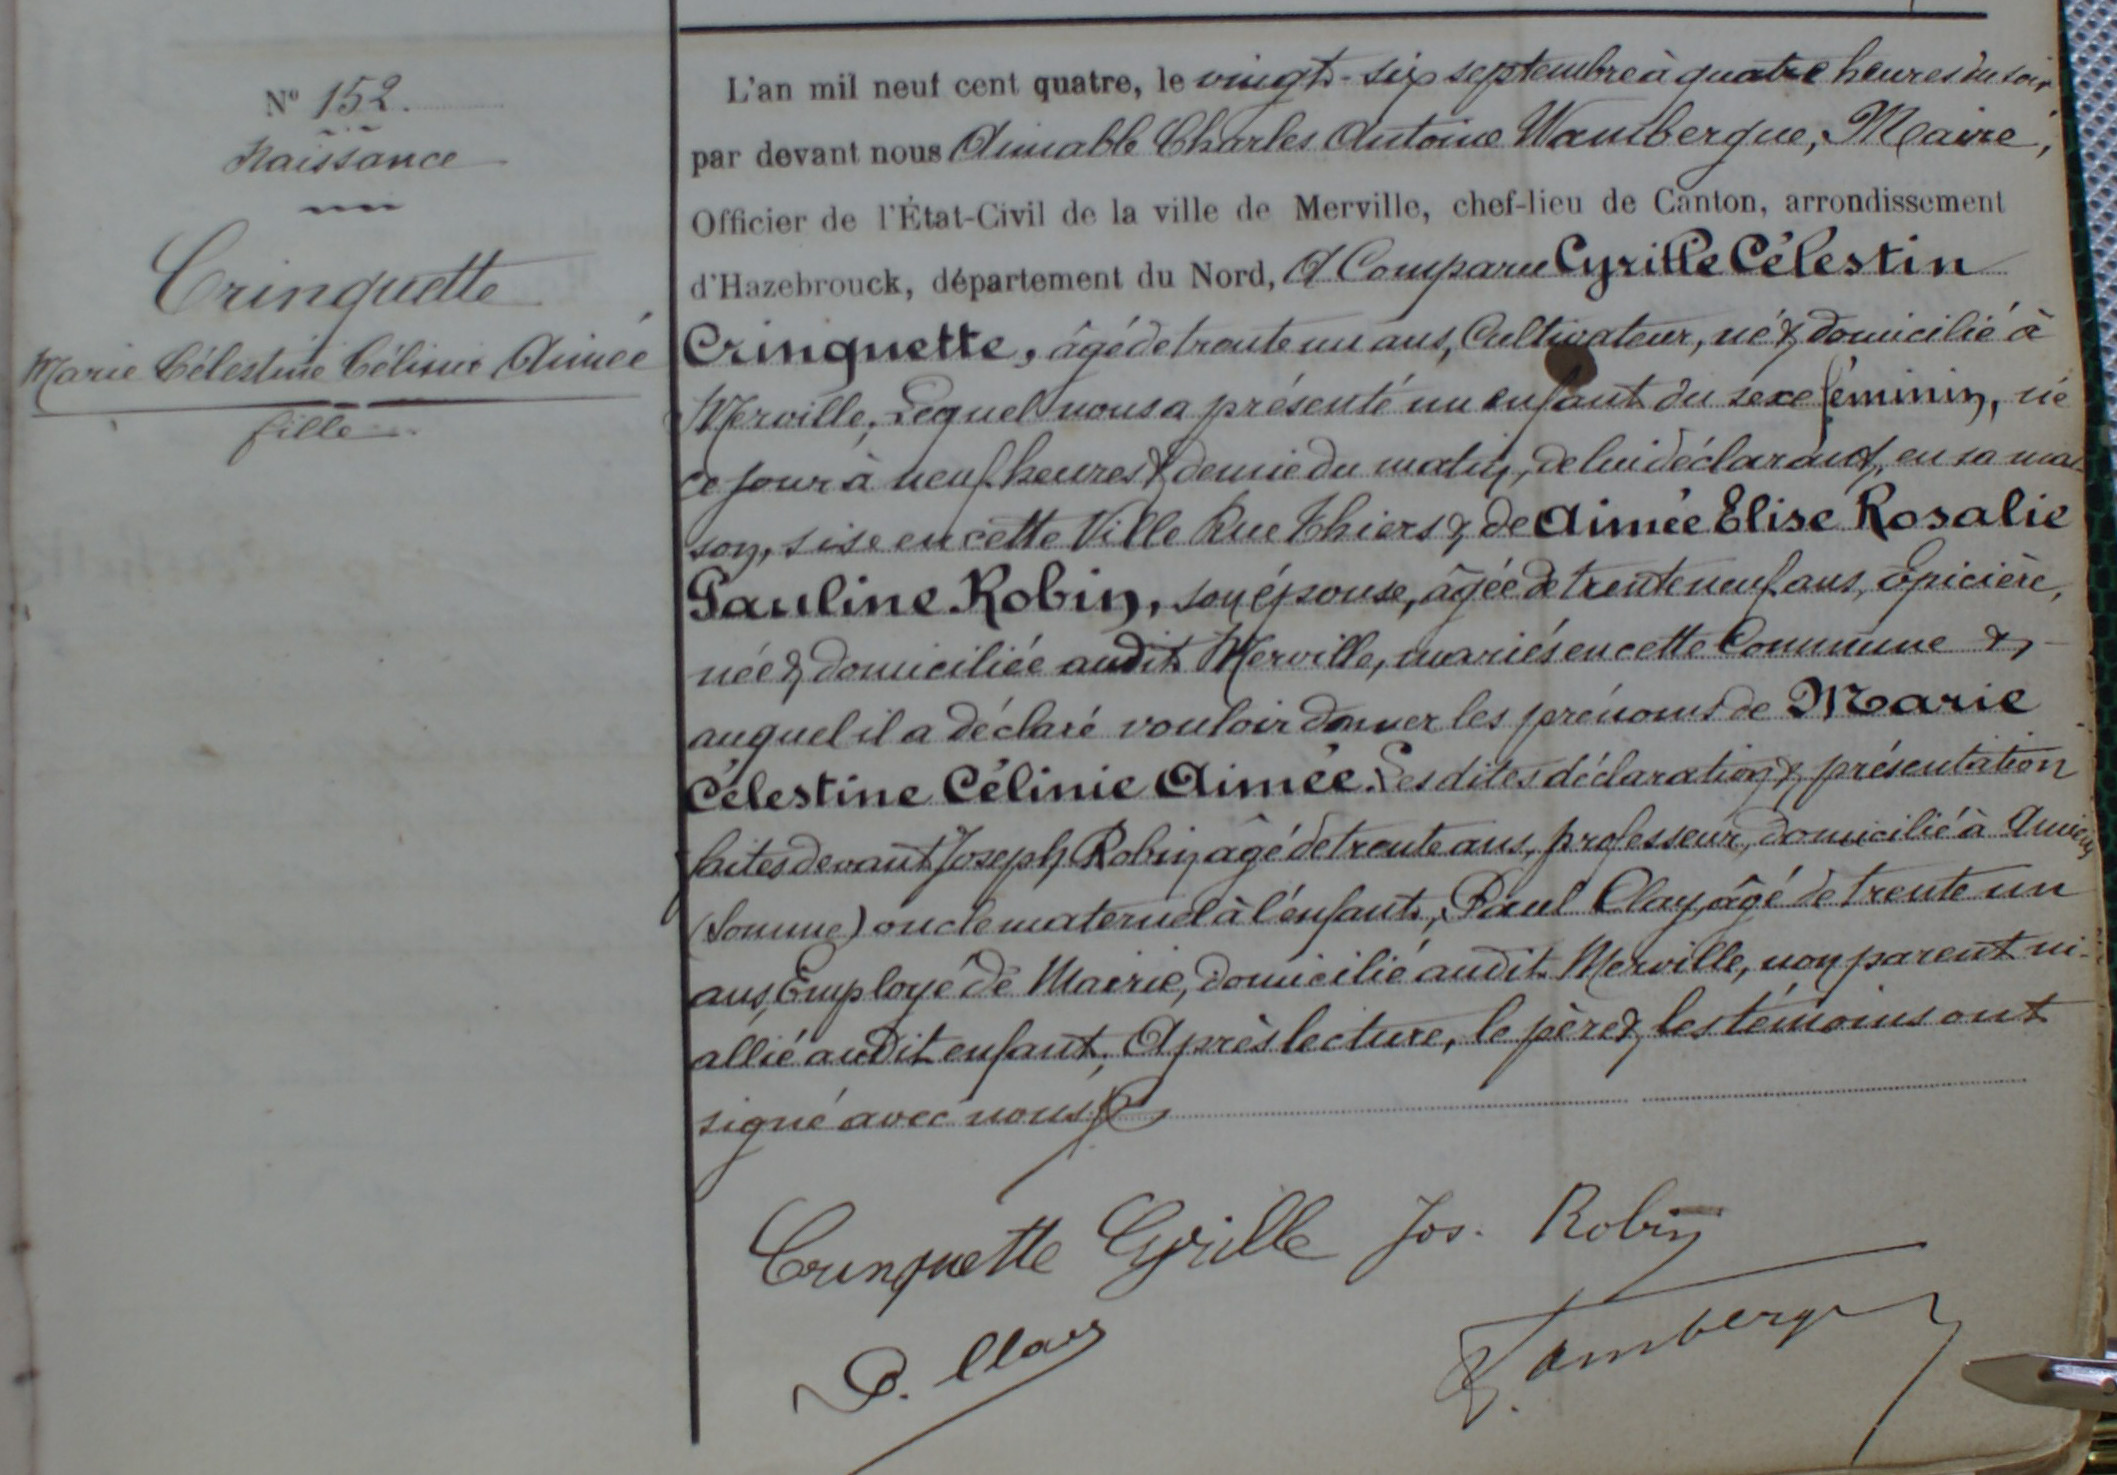 N° 152.
Naissance
Crinquette
Marie Célestine Célinie Aimée
fille
L'an mil neuf cent quatre, le vingt-six septembre à quatre heures du soir,
par devant nous Aimable Charles Antoine Wambergue, Maire,
Officier de l'État-Civil de la ville de Merville, chef-lieu de Canton, arrondissement
d'Hazebrouck, département du Nord, A Comparu Cyrille Célestin
Crinquette, âgé de trente un ans, Cultivateur, né & domicilié à
Merville, Lequel nous a présenté un enfant du sexe féminin, né
ce jour à neuf heures & demie du matin, de lui déclarant, en sa mai
son, sise en cette Ville Rue Thiers & de Aimée Elise Rosalie
Pauline Robin, son épouse, âgée de trente neuf ans, Épicière,
née & domiciliée audit Merville, mariés en cette Commune &
auquel il a déclaré vouloir donner les prénoms de Marie
Célestine Célinie Aimée. Lesdites déclaration & présentation
faites devant Joseph Robin, âgé de trente ans, professeur, domicilié à Amiens
(Somme) oncle maternel à l'enfant, Paul Clay, âgé de trente un
ans, Employé de Mairie, domicilié audit Merville, non parent ni
allié audit enfant, Après lecture, le père & les témoins ont
signé avec nous
Crinquette Cyrille Jos. Robin
P. Clay